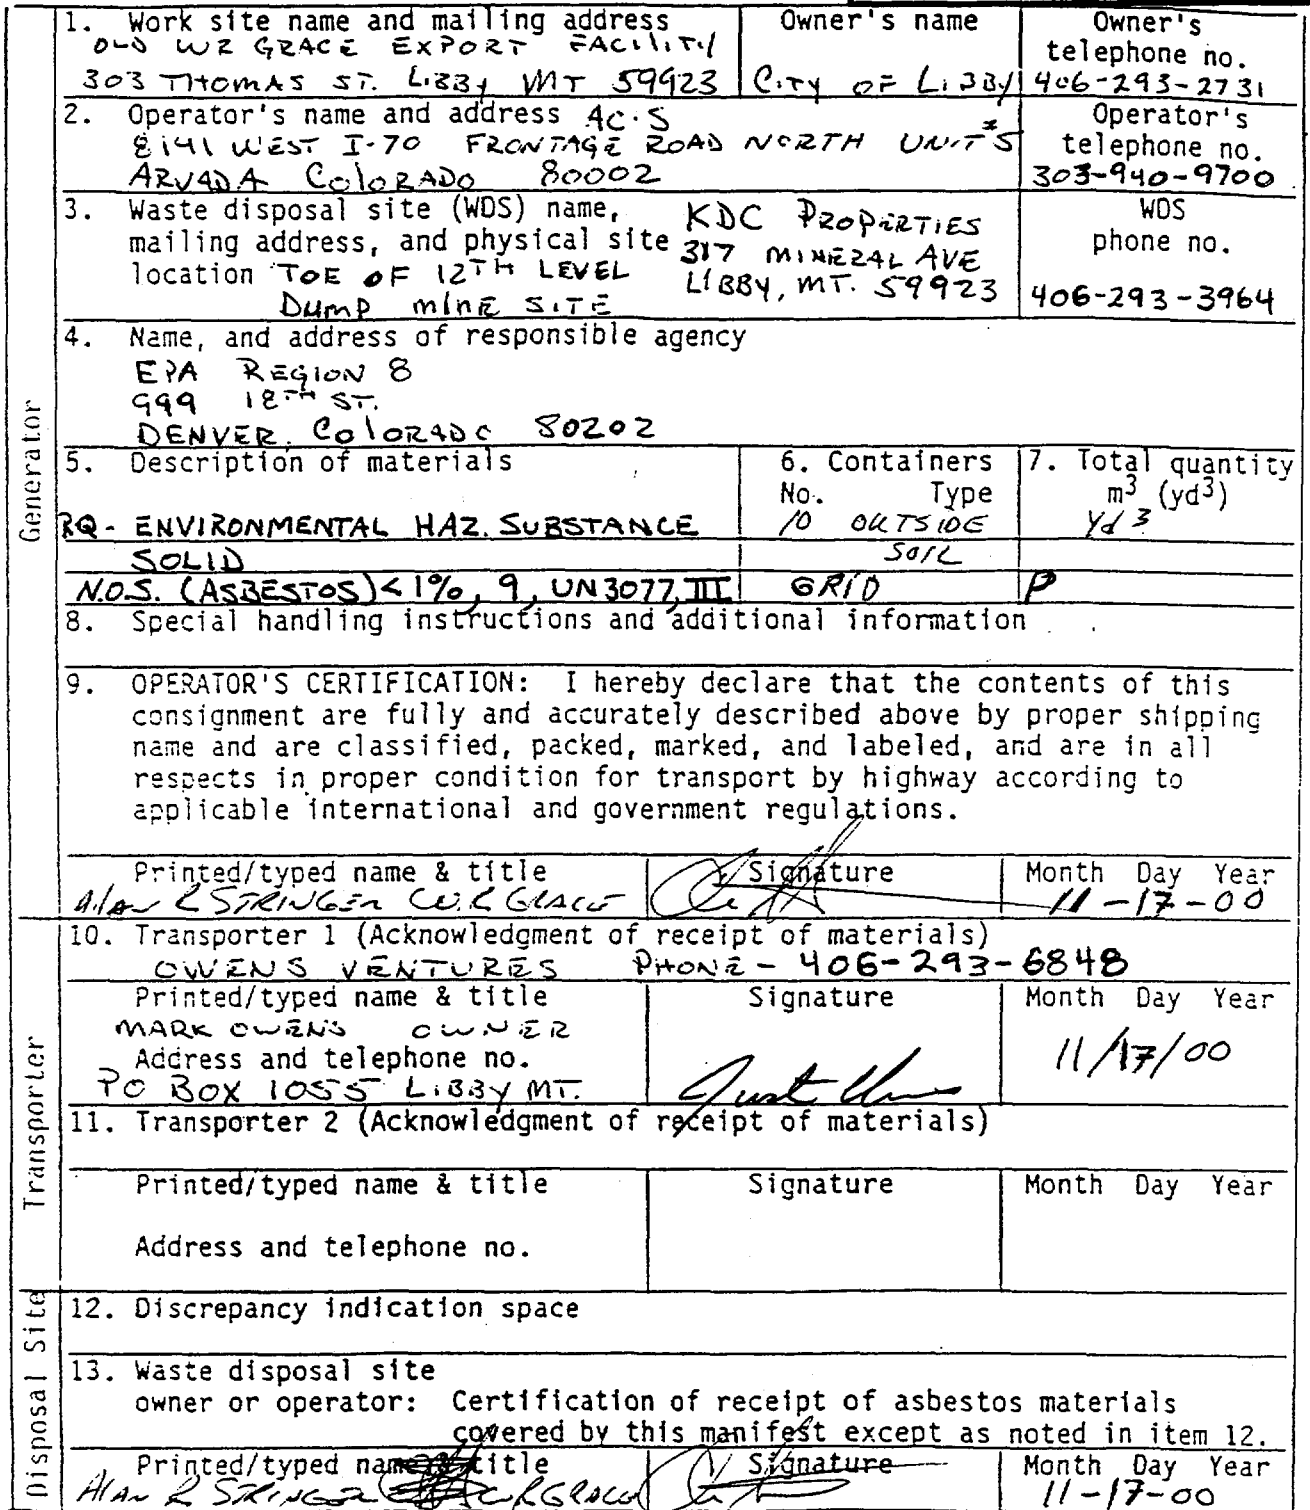 1. Work site name and mailing address
OLD WR GRACE EXPORT FACILITY
303 THOMAS ST. LIBBY MT 59923
Owner's name
CITY OF LIBBY
Owner's telephone no.
406-293-2731
2. Operator's name and address ACS
8141 WEST I-70 FRONTAGE ROAD NORTH UNIT #5
ARVADA COLORADO 80002
Operator's telephone no.
303-940-9700
3. Waste disposal site (WDS) name,
mailing address, and physical site
location TOE OF 12TH LEVEL
DUMP MINE SITE
KDC PROPERTIES
317 MINERAL AVE
LIBBY, MT. 59923
WDS
phone no.
406-293-3964
Generator
4. Name, and address of responsible agency
EPA REGION 8
999 18TH ST.
DENVER, COLORADO 80202
5. Description of materials
RQ - ENVIRONMENTAL HAZ. SUBSTANCE
SOLID
N.O.S. (ASBESTOS) <1%, 9, UN3077, III
6. Containers
No. Type
10 OUTSIDE
SOIL
GRID
7. Total quantity
m3 (yd3)
yd3
P
8. Special handling instructions and additional information
9. OPERATOR'S CERTIFICATION: I hereby declare that the contents of this
consignment are fully and accurately described above by proper shipping
name and are classified, packed, marked, and labeled, and are in all
respects in proper condition for transport by highway according to
applicable international and government regulations.
Printed/typed name & title
Alan R STRINGER W.R GRACE
Signature
Month Day Year
11-17-00
Transporter
10. Transporter 1 (Acknowledgment of receipt of materials)
OWENS VENTURES PHONE - 406-293-6848
Printed/typed name & title
MARK OWENS OWNER
Address and telephone no.
PO BOX 1055 LIBBY MT.
Signature
Month Day Year
11/17/00
11. Transporter 2 (Acknowledgment of receipt of materials)
Printed/typed name & title
Signature
Month Day Year
Address and telephone no.
Disposal Site
12. Discrepancy indication space
13. Waste disposal site
owner or operator: Certification of receipt of asbestos materials
covered by this manifest except as noted in item 12.
Printed/typed name & title
Alan R STRINGER W.R GRACE
Signature
Month Day Year
11-17-00